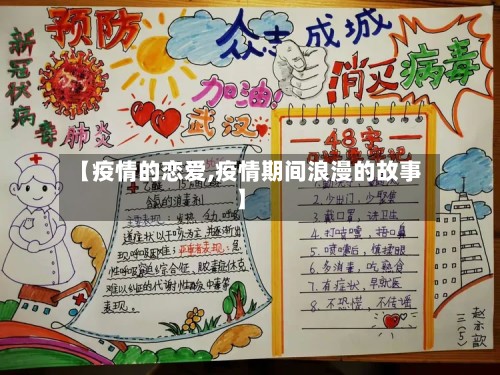 预防
众志成城
消灭病毒
新冠状病毒肺炎
加油!
武汉
48字
【疫情的恋爱,疫情期间浪漫的故事
】
乙醚、75%
含氯的消毒剂
主要表现:发热、
道症状以干咳为主,并逐渐出
现呼吸困难;严重者表现:急
性呼吸窘迫综合征、脓毒症休克
难以纠正的代谢性酸中毒等
表现。
2.少出门,少聚集
3.戴口罩,讲卫生
4.打咳嚏,捂口鼻
5.喷嚏后,慎揉眼
6.多消毒,吃熟食
7.有症状,早就医
8.不恐慌,不传谣
三(5)